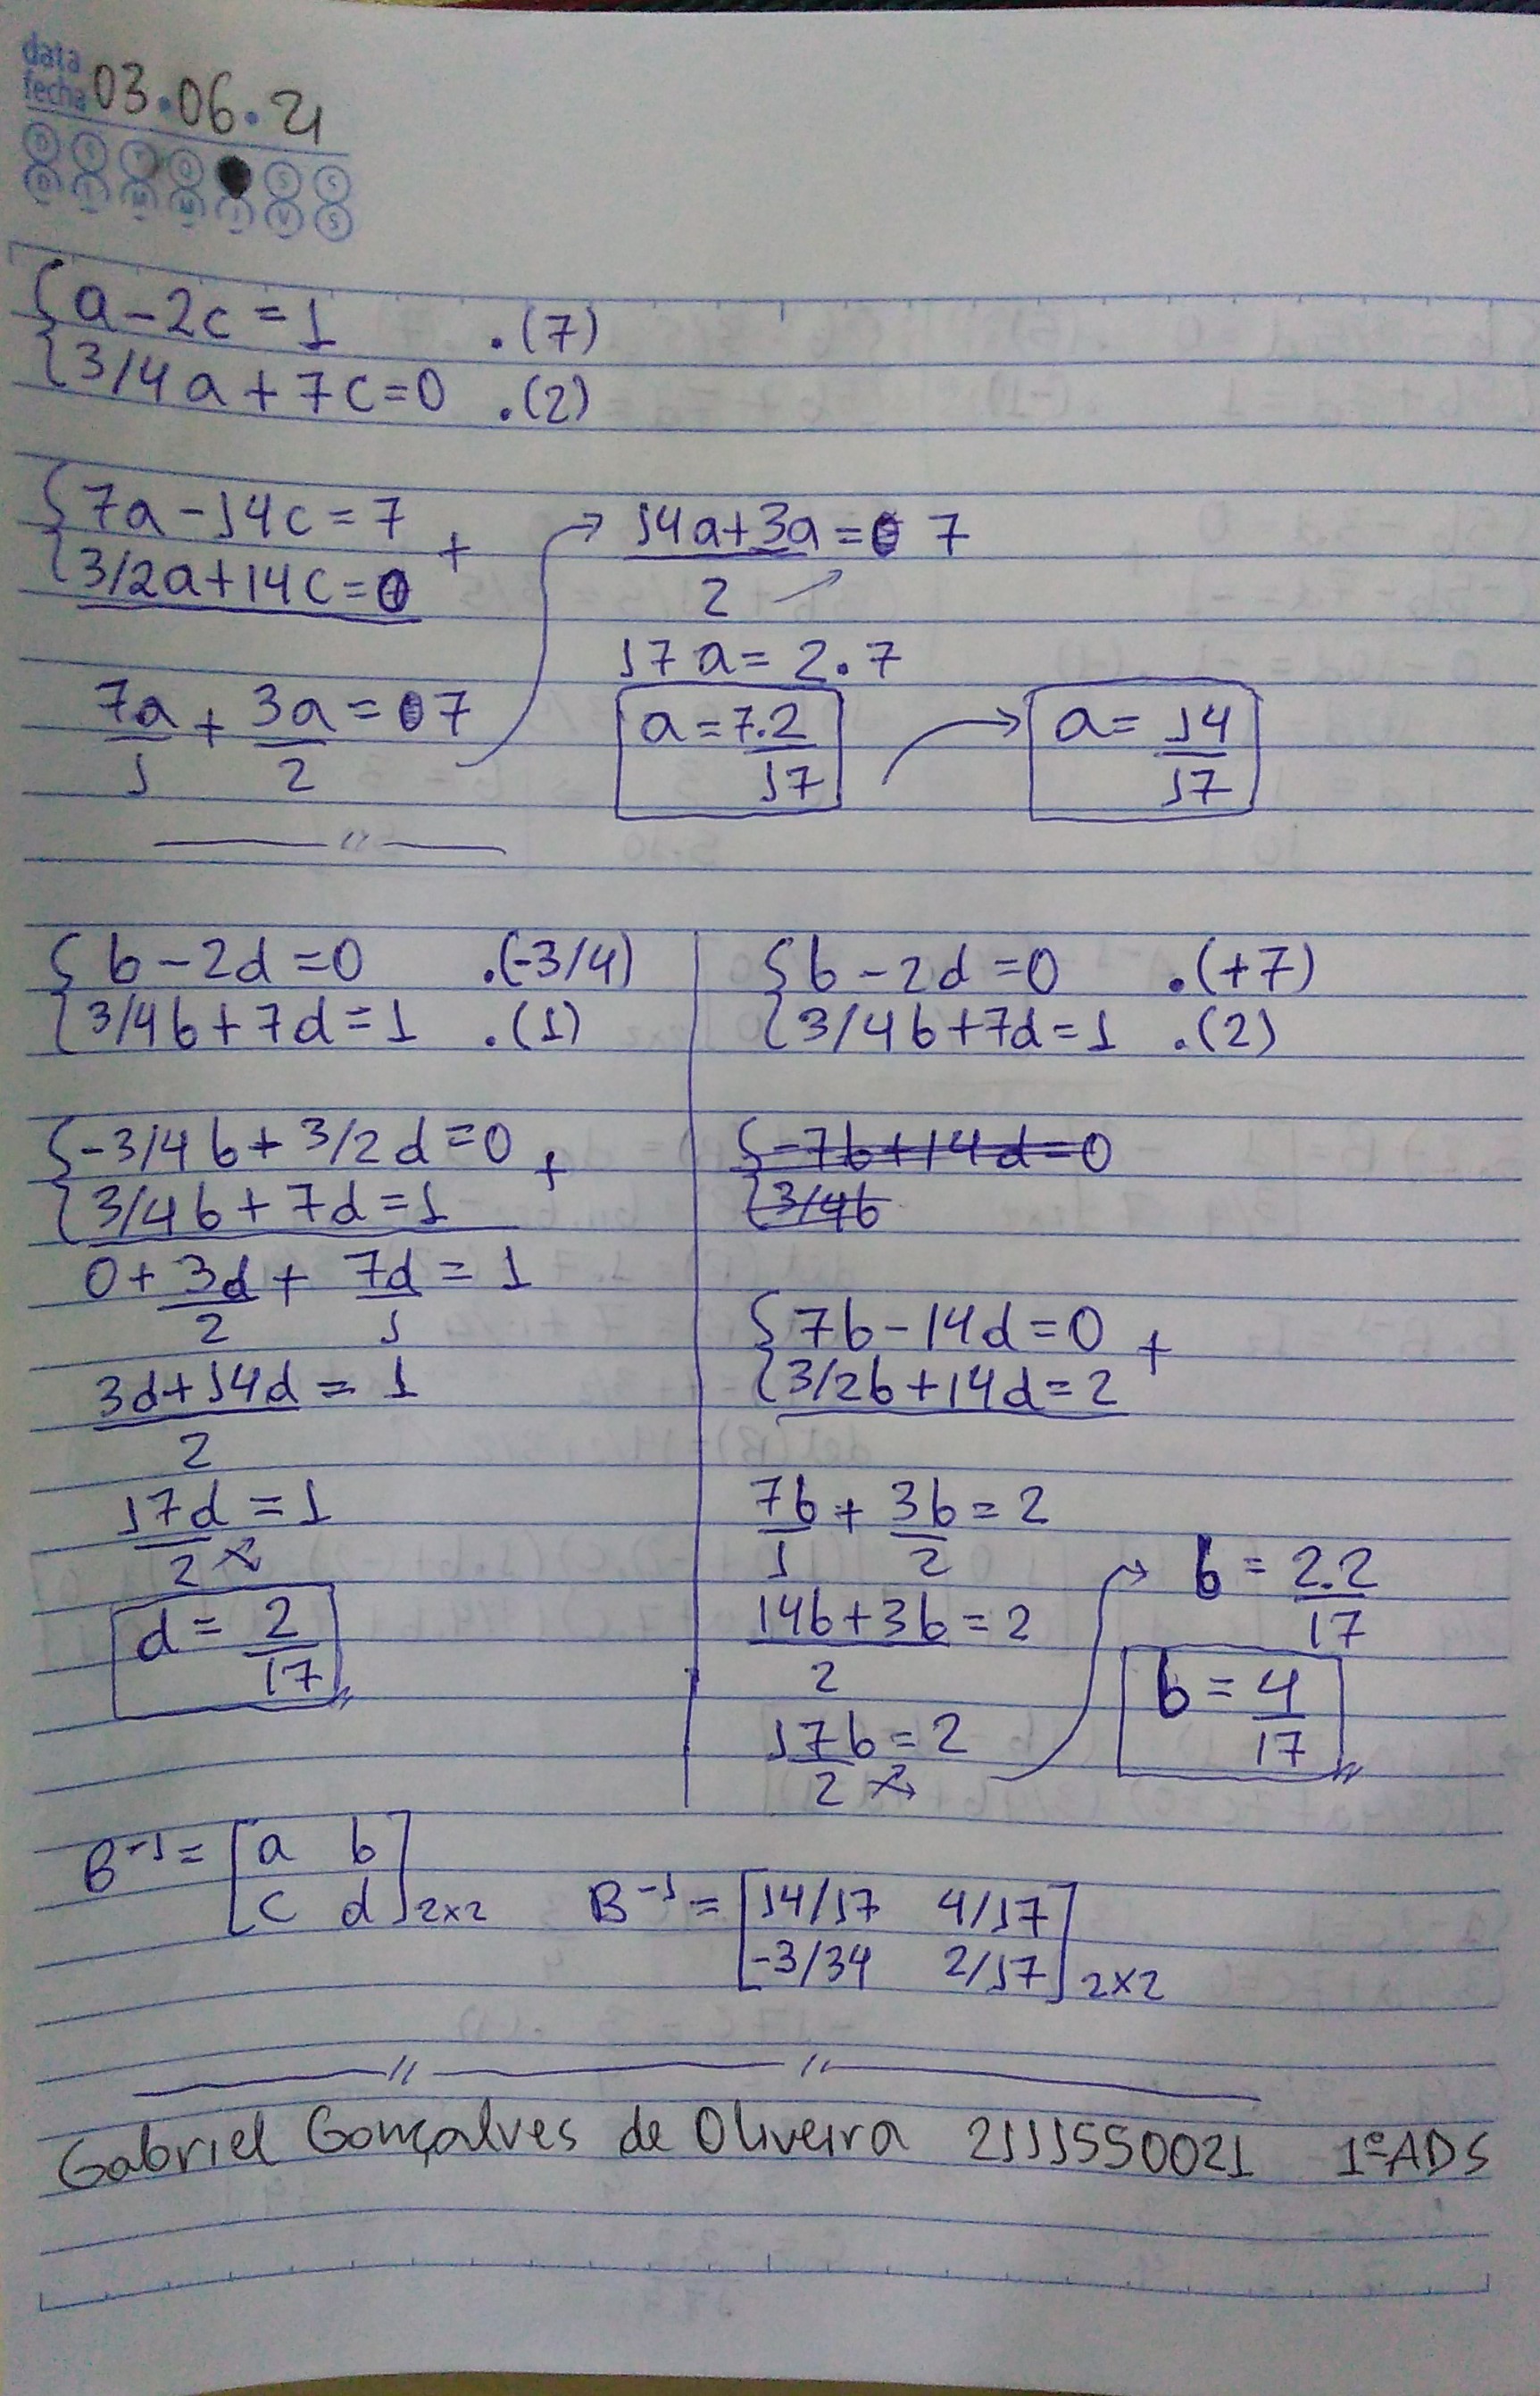 data
fecha 03.06.21
D S T Q S S
D L M M J V S
{a-2c=1 .(7)
{3/4a+7c=0 .(2)
{7a-14c=7
{3/2a+14c=0 +
7a/1 + 3a/2 = 7
14a+3a/2 = 7
17a=2.7
a=7.2/17
a=14/17
{b-2d=0 .(-3/4)
{3/4b+7d=1 .(1)
{-3/4b+3/2d=0 +
{3/4b+7d=1
0+3d/2+7d/1=1
3d+14d/2=1
17d/2=1
d=2/17
{b-2d=0 .(+7)
{3/4b+7d=1 .(2)
{-7b+14d=0
{3/4b
{7b-14d=0 +
{3/2b+14d=2
7b/1+3b/2=2
14b+3b/2=2
17b/2=2
b=2.2/17
b=4/17
B⁻¹=[a b
c d]2x2
B⁻¹=[14/17 4/17
-3/34 2/17]2x2
Gabriel Gonçalves de Oliveira 2111550021 1ºADS